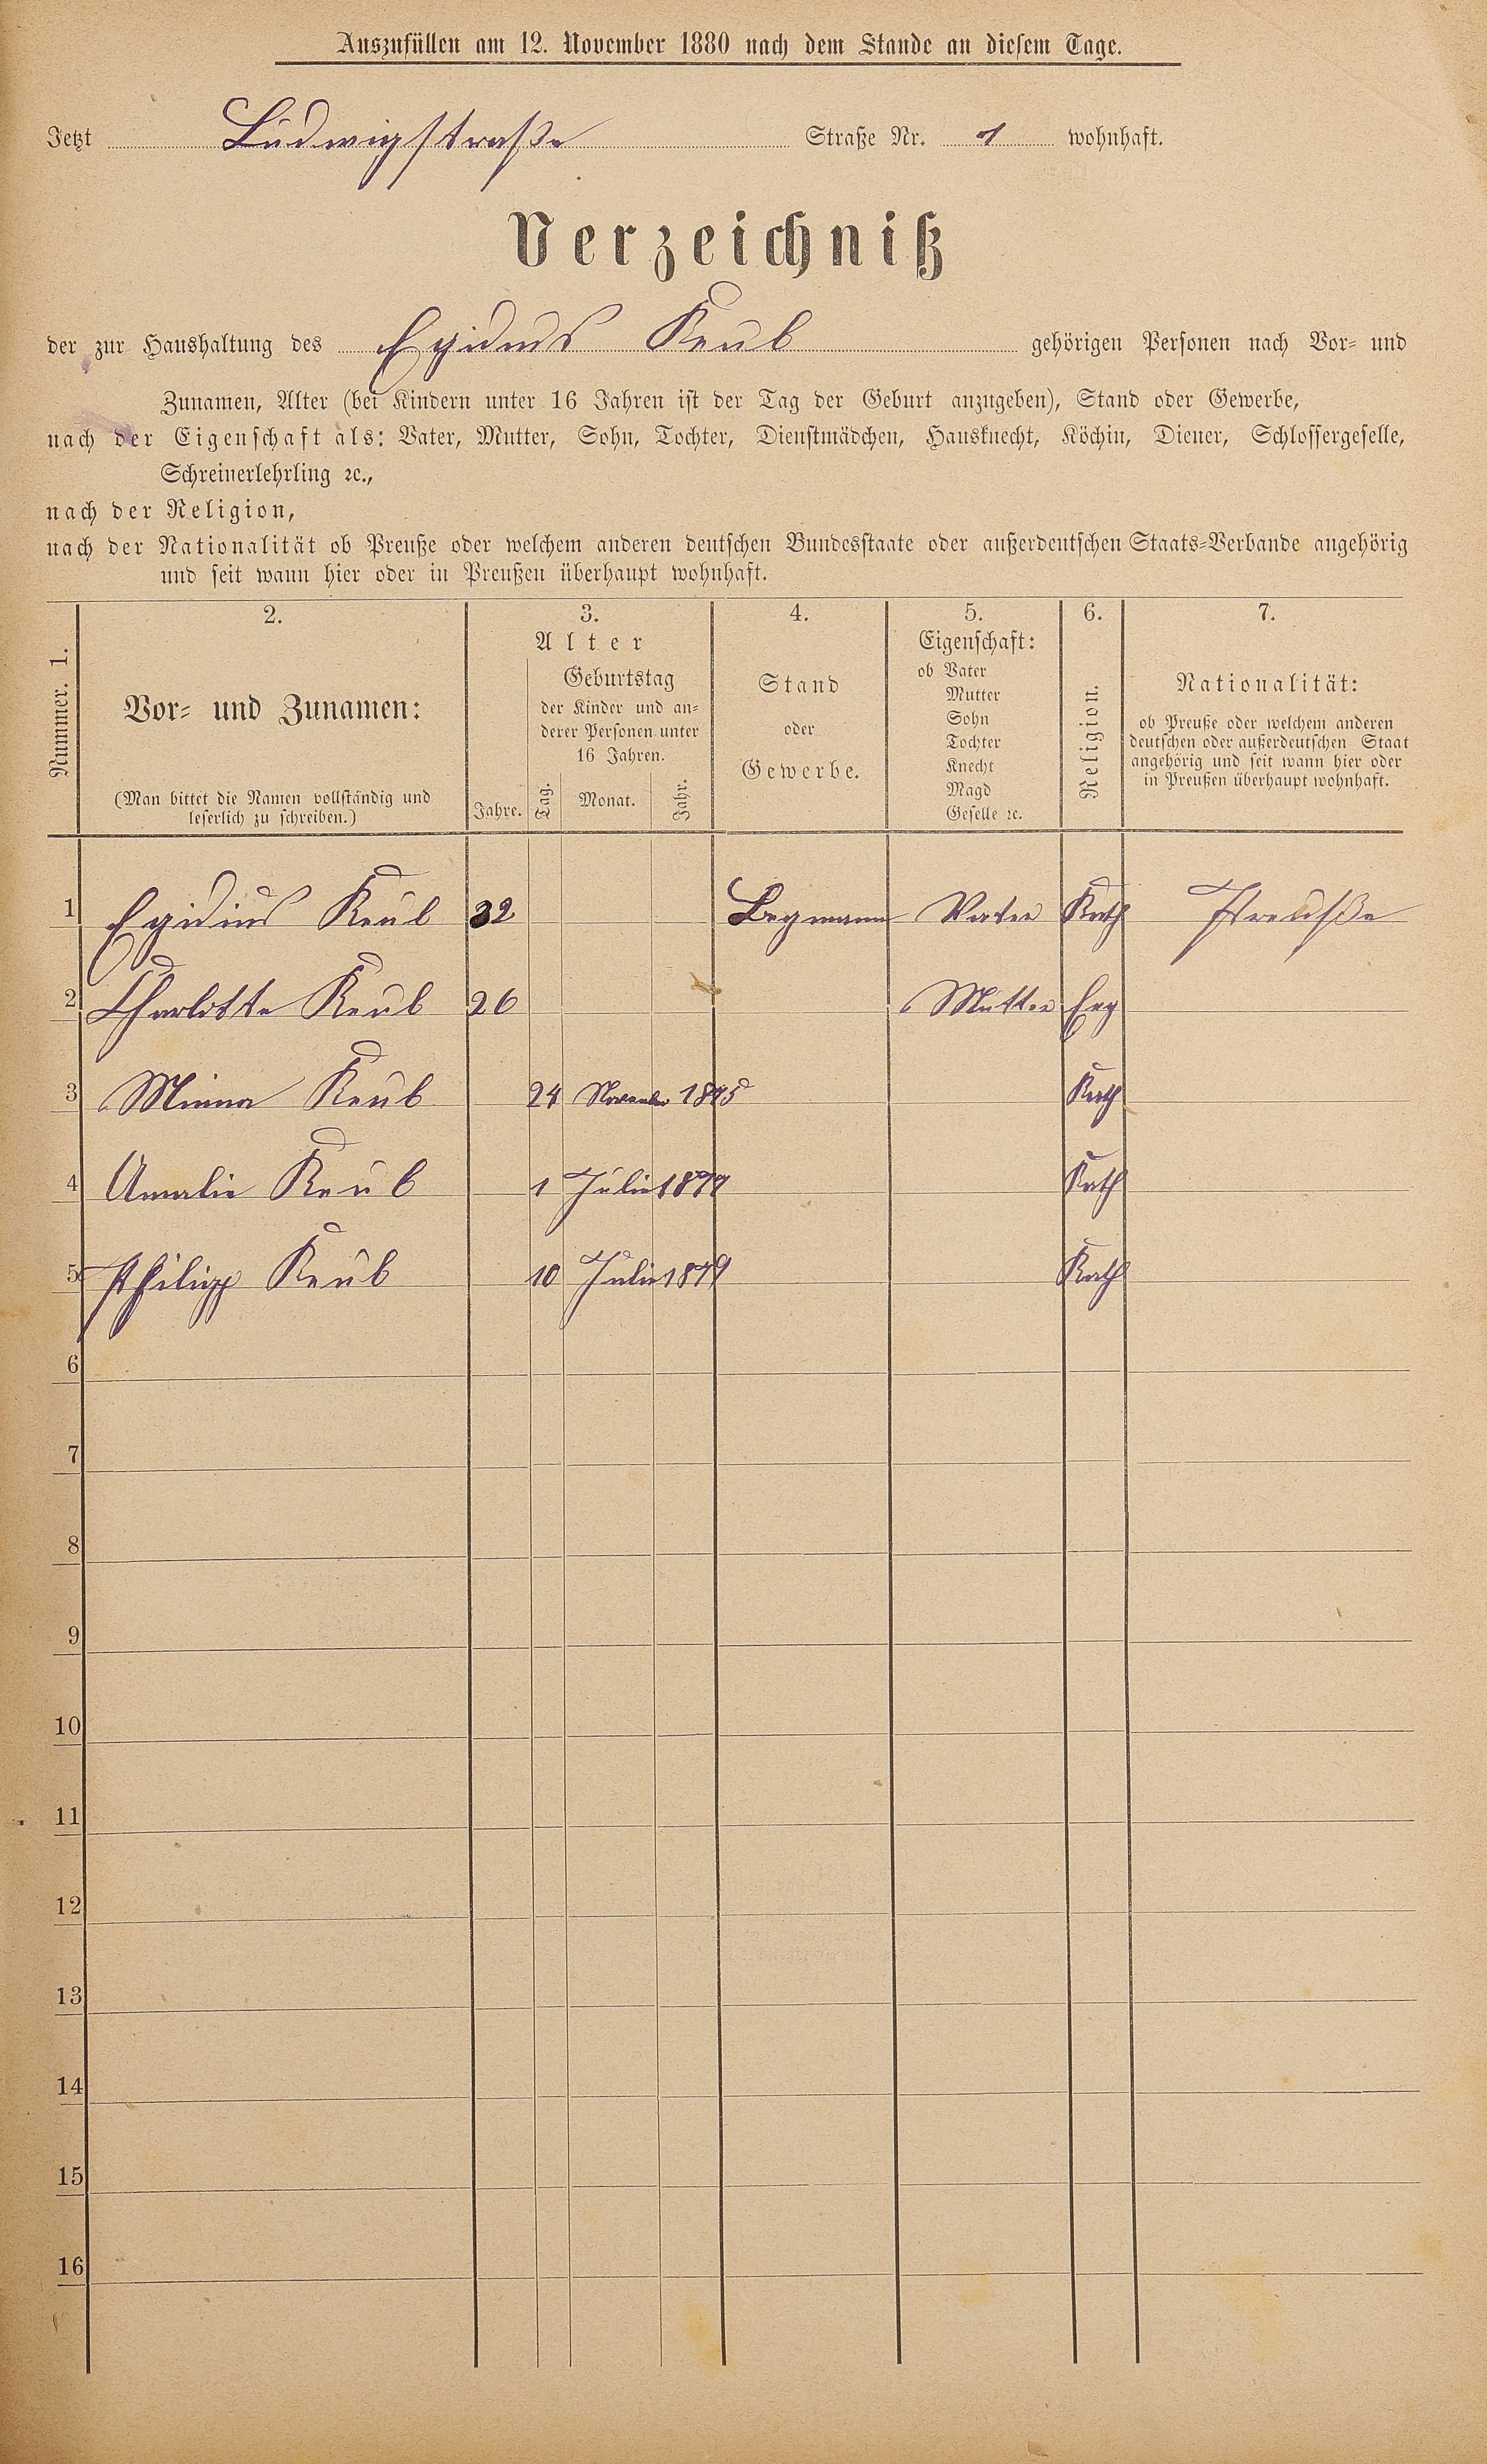 Auszufüllen am 12. November 1880 nach dem Stande an diesem Tage.
Jetzt Ludwigstraße Straße Nr. 1 wohnhaft.
Verzeichniß
der zur Haushaltung des Egidius Keul gehörigen Personen nach Vor- und
Zunamen, Alter (bei Kindern unter 16 Jahren ist der Tag der Geburt anzugeben), Stand oder Gewerbe,
nach der Eigenschaft als: Vater, Mutter, Sohn, Tochter, Dienstmädchen, Hausknecht, Köchin, Diener, Schlossergeselle,
Schreinerlehrling ꝛc.,
nach der Religion,
nach der Nationalität ob Preuße oder welchem anderen deutschen Bundesstaate oder außerdeutschen Staats-Verbande angehörig
und seit wann hier oder in Preußen überhaupt wohnhaft.
Nummer. 1.
2.
Vor- und Zunamen:
(Man bittet die Namen vollständig und
leserlich zu schreiben.)
3.
Alter
Jahre.
Geburtstag
der Kinder und an-
derer Personen unter
16 Jahren.
Tag. Monat. Jahr.
4.
Stand
oder
Gewerbe.
5.
Eigenschaft:
ob Vater
Mutter
Sohn
Tochter
Knecht
Magd
Geselle ꝛc.
6.
Religion.
7.
Nationalität:
ob Preuße oder welchem anderen
deutschen oder außerdeutschen Staat
angehörig und seit wann hier oder
in Preußen überhaupt wohnhaft.
1 Egidius Keul 32 Begmann Vater Kath Preusße
2 Charlotte Keul 26 Mutter Evg
3 Minna Keul 24 November 1875 Kath
4 Amalie Keul 1 Julie 1877 Kath
5 Philipp Keul 10 Julie 1879 Kath
6
7
8
9
10
11
12
13
14
15
16